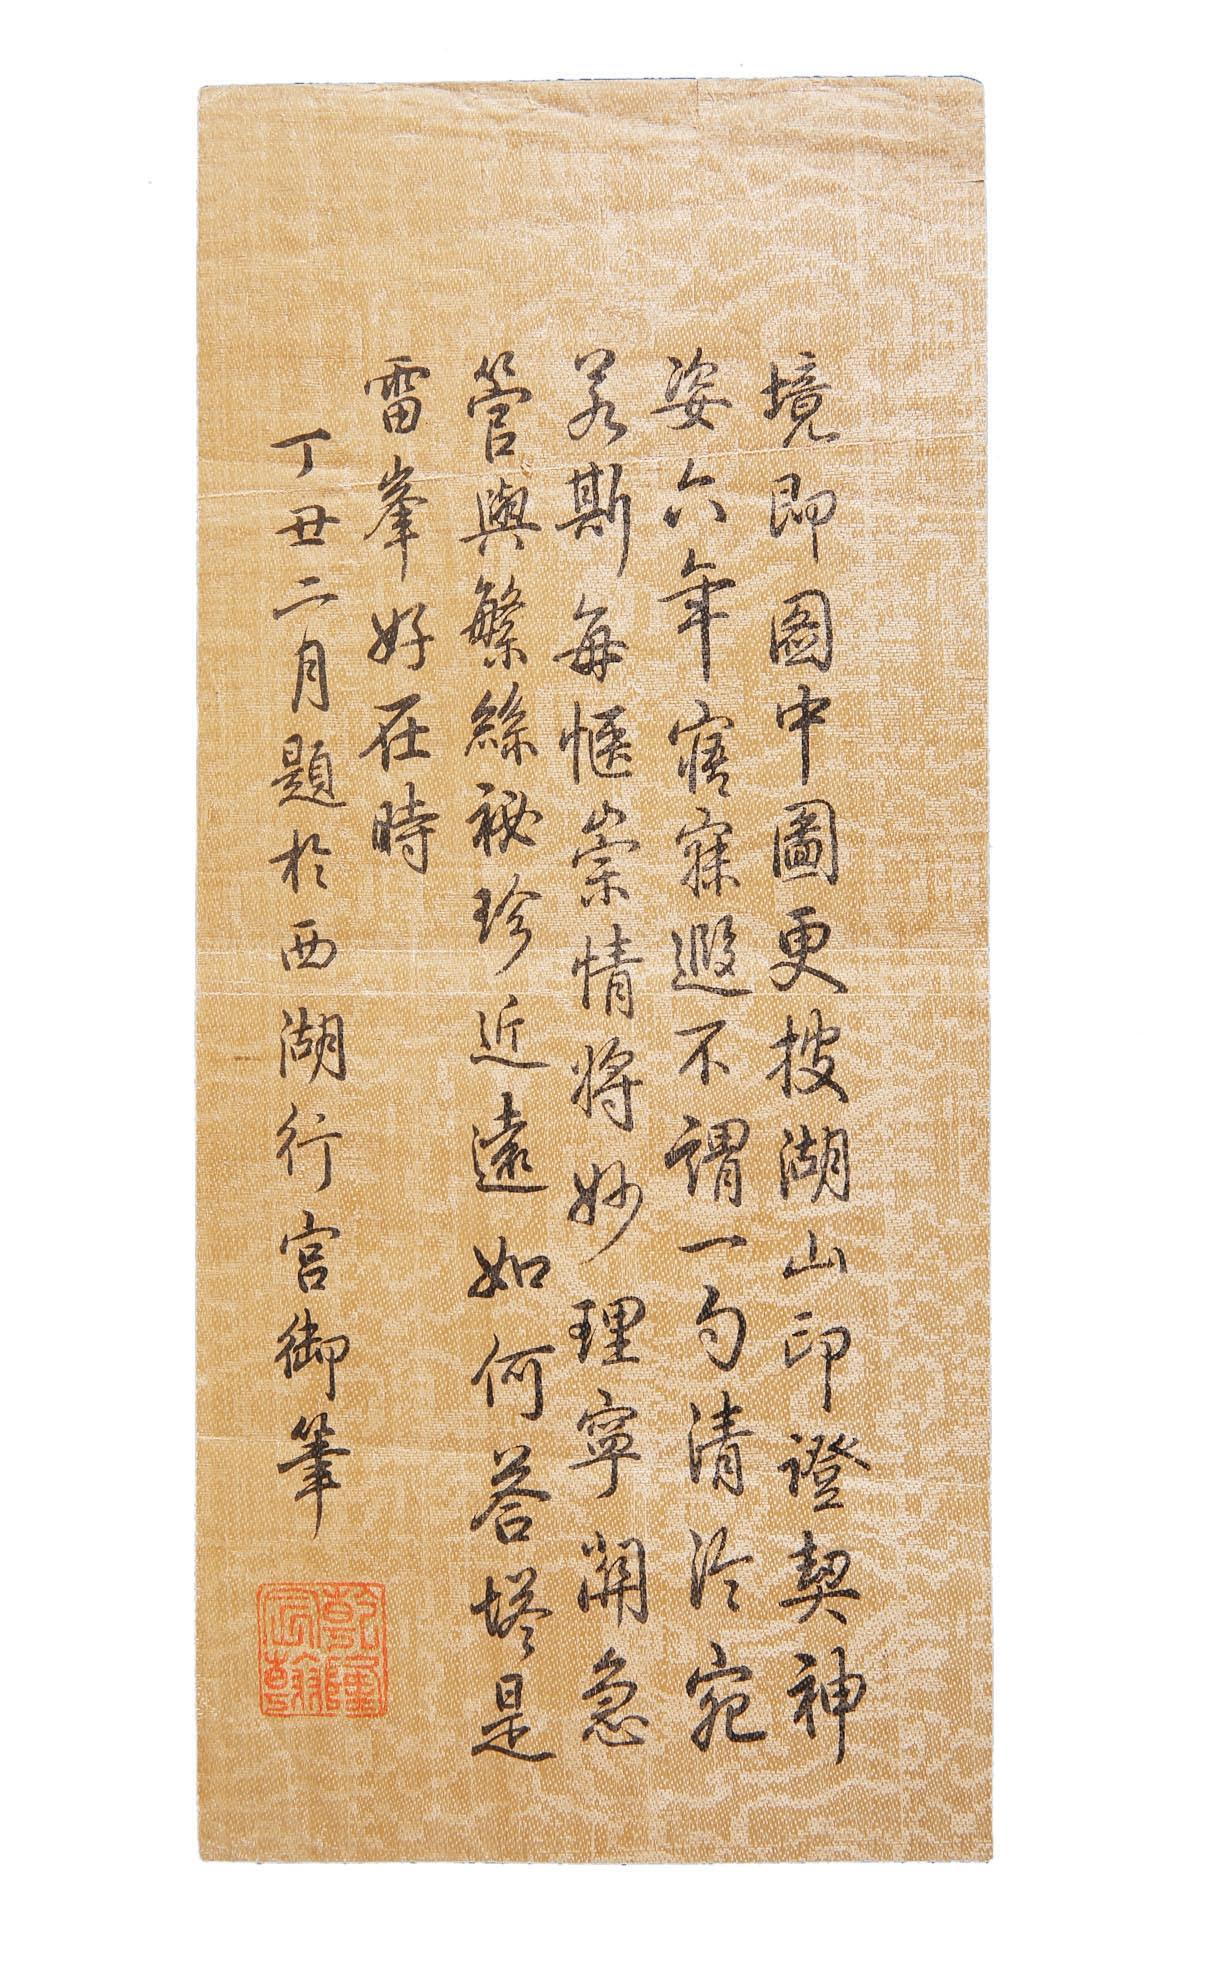 境即圖中圖更披湖山印證契神
姿六年寤寐遐不謂一勺清泠宛
若斯每愜崇情將妙理寧關急
管與繁絲祕珍近遠如何答塔是
雷峯好在時
丁丑二月題於西湖行宮御筆
乾隆
宸翰